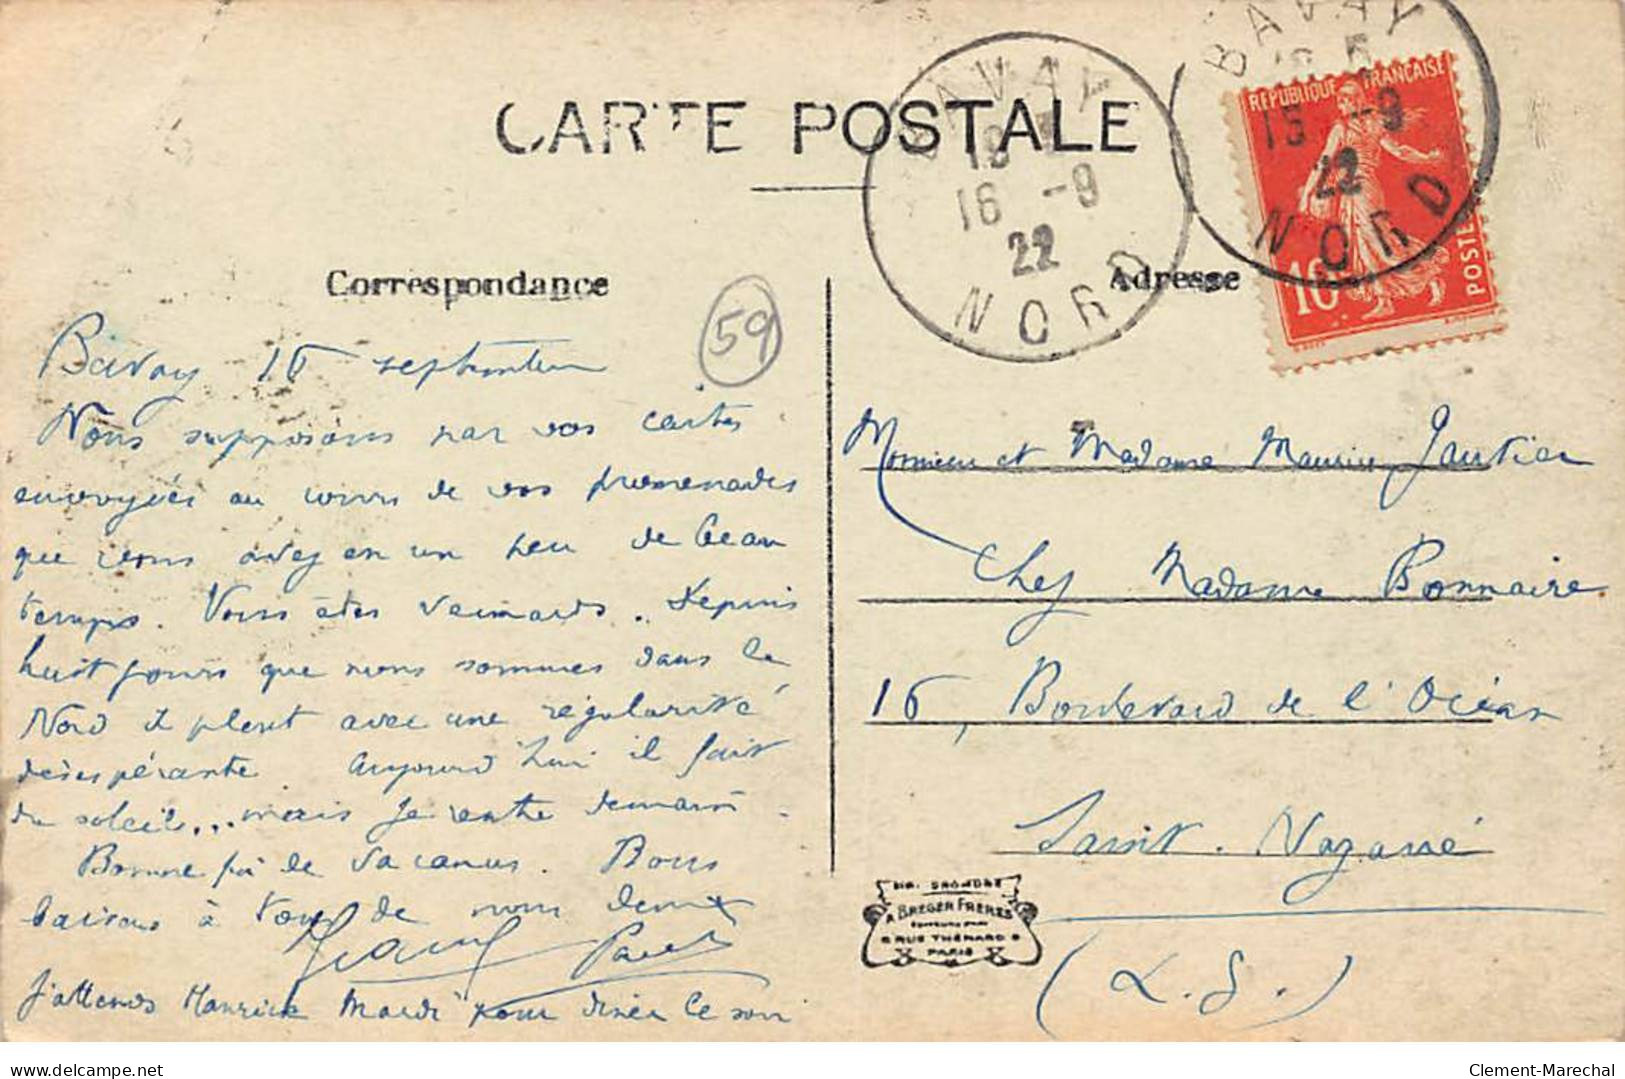 CARTE POSTALE
BAVAY
16 -9
22
NORD
BAVAY
15 -9
22
NORD
REPUBLIQUE FRANÇAISE
10
POSTES
Correspondance
Adresse
59
Bavay 16 septembre
Nous supposons par vos cartes
envoyées au cours de vos promenades
que vous avez eu un peu de beau
temps. Vous êtes veinards.. Depuis
huit jours que nous sommes dans le
Nord il pleut avec une régularité
désespérante. Aujourd'hui il fait
du soleil... mais je rentre demain.
Bonne fin de vacances. Bons
baisers à tous de nous deux
J'attends Maurice Mardi pour dîner le soir
Monsieur et Madame Maurice Gautier
Chez Madame Bonnaire
16, Boulevard de l'Océan
Saint-Nazaire
(L. I.)
A BREGER FRERES
9 RUE THÉNARD 9
PARIS
delcampe.net
Clement-Marechal